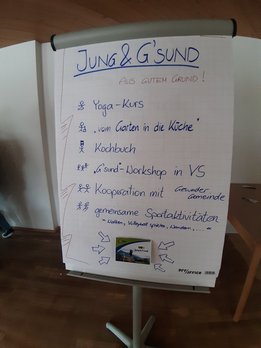 JUNG & G'SUND
AUS GUTEM GRUND!
Yoga-Kurs
"vom Garten in die Küche"
Kochbuch
"G'sund"-Workshop in VS
Kooperation mit Gesunder
Gemeinde
gemeinsame Sportaktivitäten